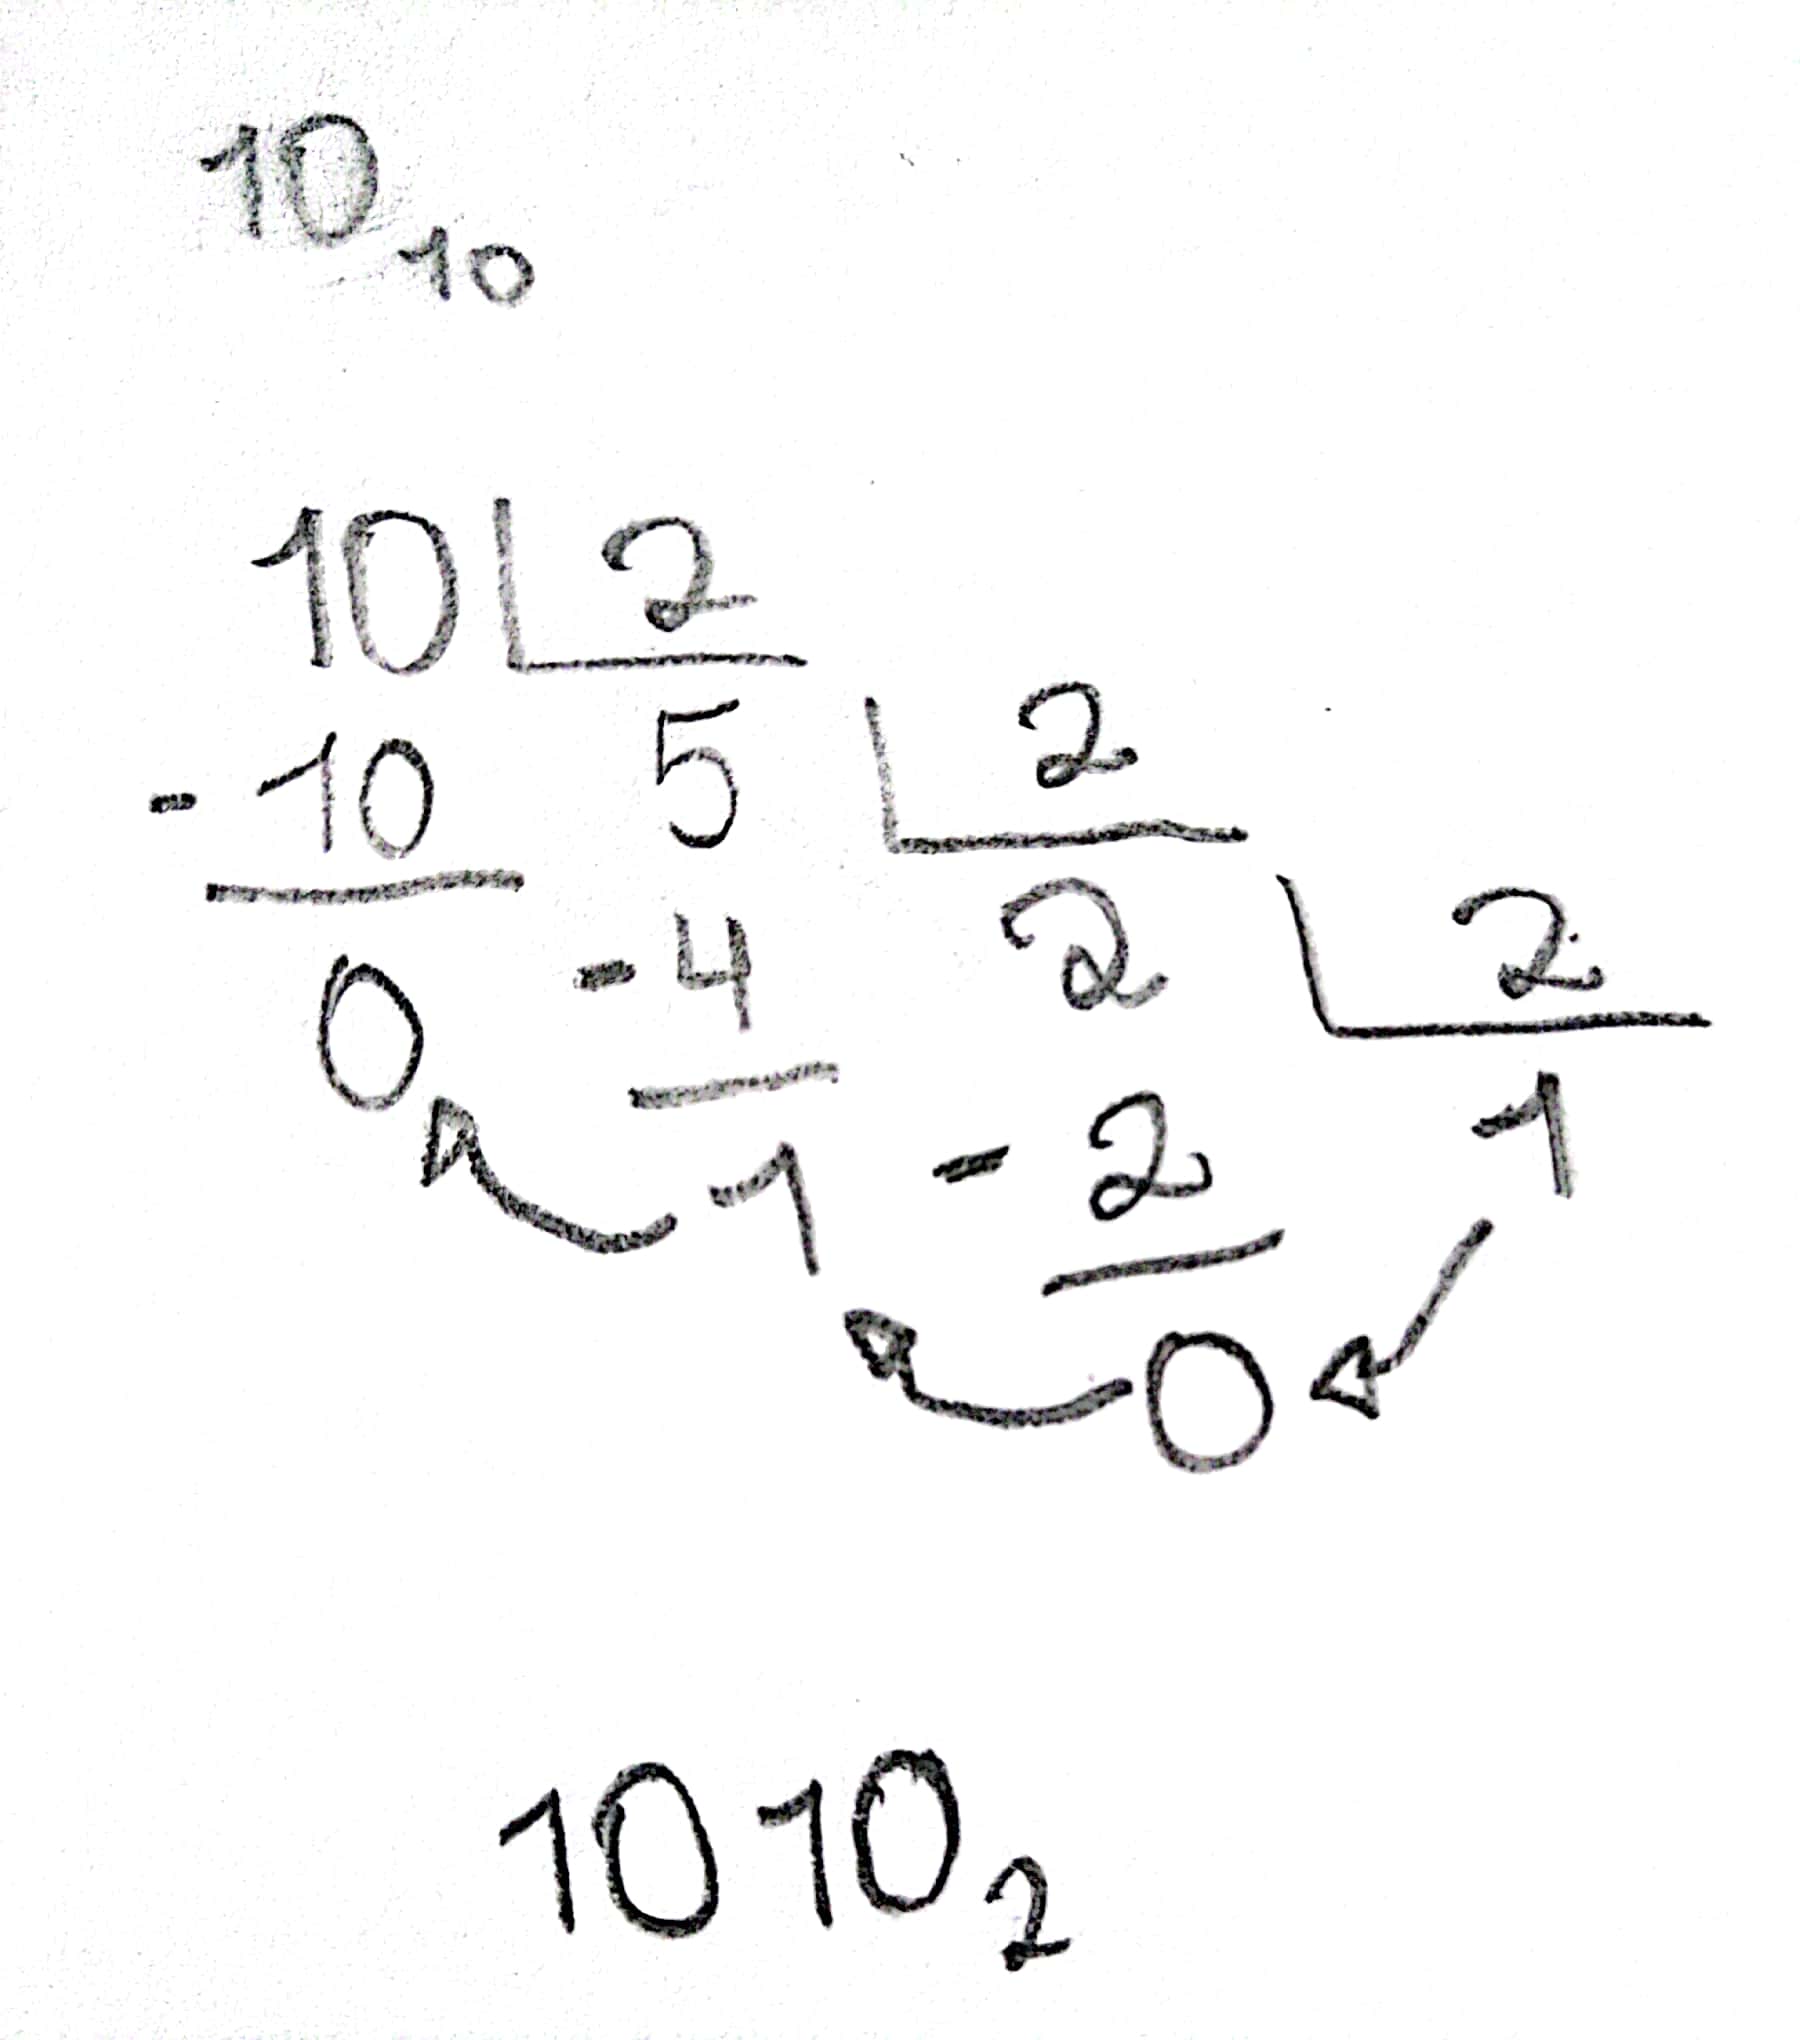 10₁₀
10 2
- 10 5 2
0 - 4 2 2
1 - 2 1
0
1010₂